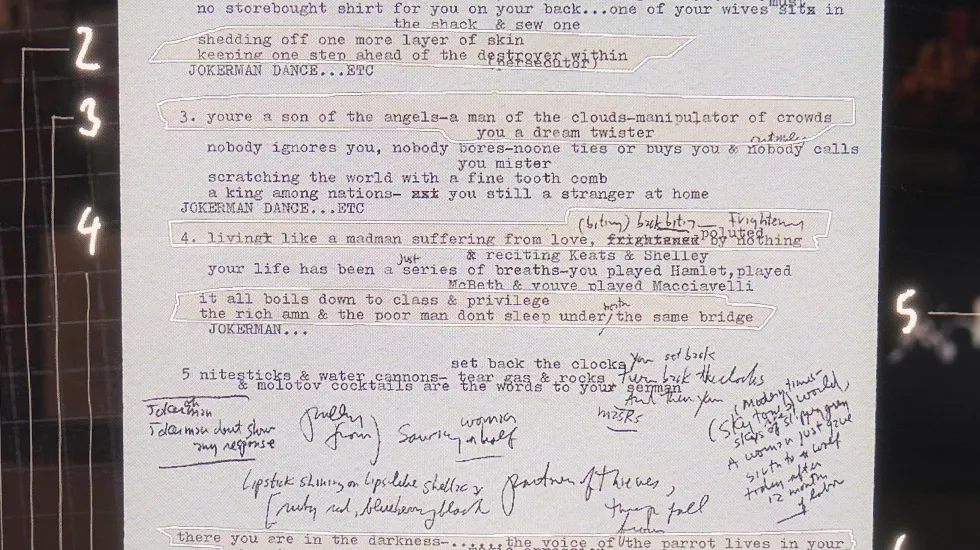 no storebought shirt for you on your back...one of your wives must sits in
the shack & sew one
shedding off one more layer of skin
keeping one step ahead of the destroyer within
(tormentor)
JOKERMAN DANCE...ETC
2
3
3. youre a son of the angels-a man of the clouds-manipulator of crowds
you a dream twister
nobody ignores you, nobody bores-noone ties or buys you & nobody calls
you mister
scratching the world with a fine tooth comb
a king among nations- you still a stranger at home
JOKERMAN DANCE...ETC
4
(biting) backbiting frightening
poluted
4. living like a madman suffering from love, frightened by nothing
& reciting Keats & Shelley
just
your life has been a series of breaths-you played Hamlet,played
McBeth & youve played Macciavelli
it all boils down to class & privilege
neath
the rich amn & the poor man dont sleep under the same bridge
JOKERMAN...
5
set back the clocks you set back
5 nitesticks & water cannons- tear gas & rocks turn back the clocks
& molotov cocktails are the words to your serman
And then you
oh
Jokerman
Jokerman dont show
any response
(pulley
from)
woman
Sawing in half
(modern times
(skytone) world,
A woman just gave
birth to a wolf
today after
12 month
of labor
Lipstick shining on lips like shellac &
[ruby red, blueberry black
partner of thieves,
fall
there you are in the darkness-......the voice of the parrot lives in your